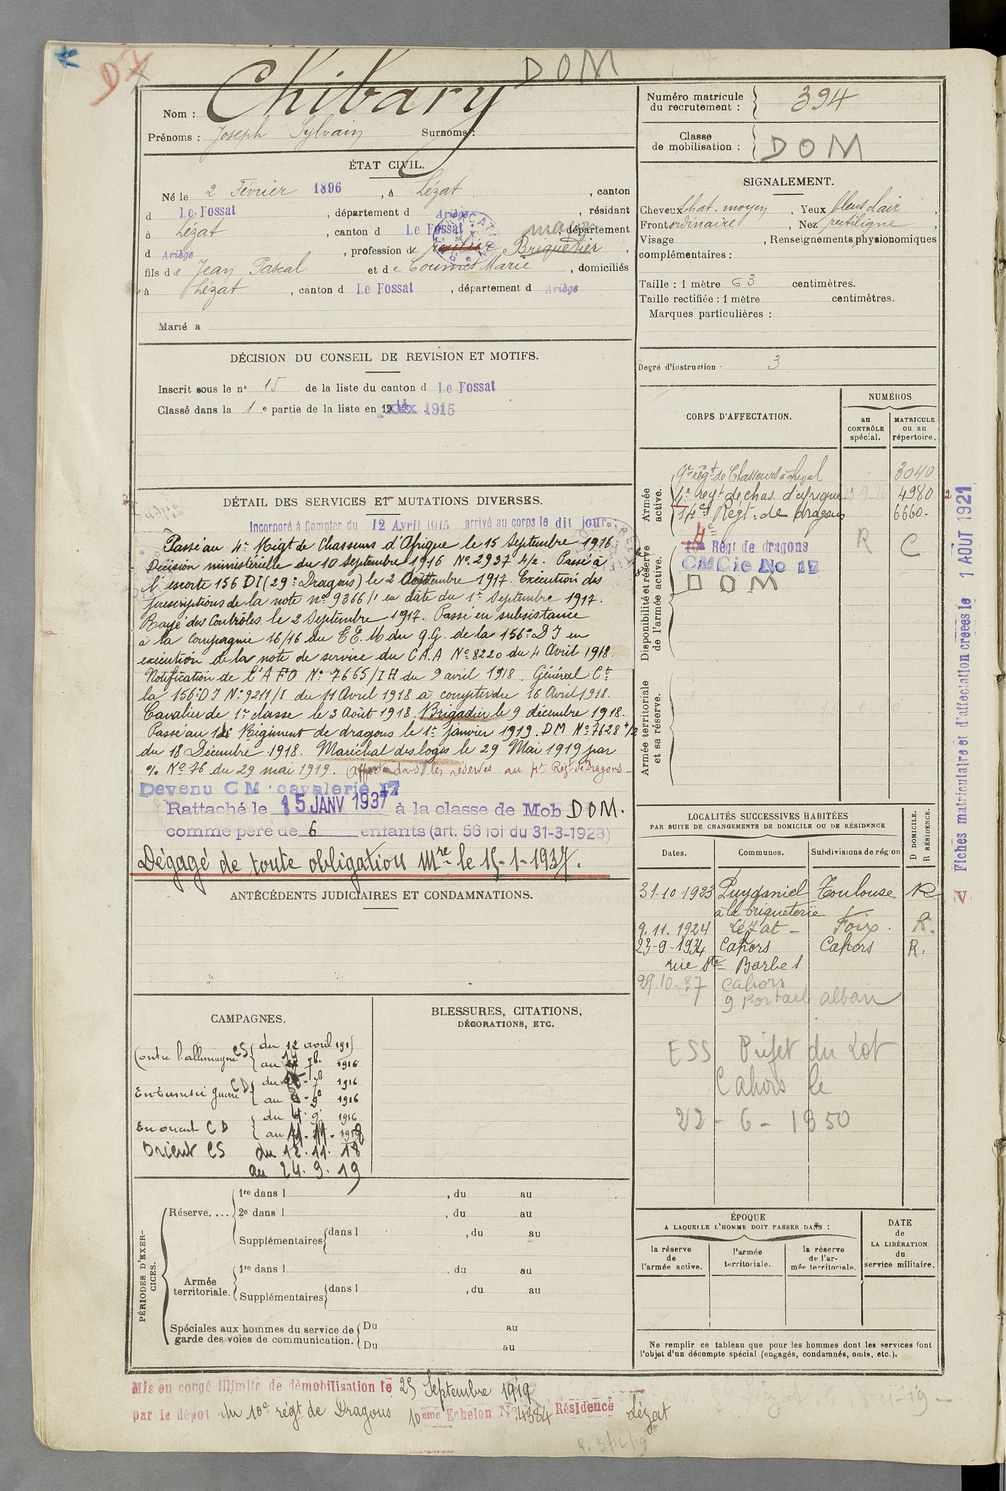 D7
DOM
Nom : Chibary
Prénoms : Joseph Sylvain Surnoms :
ÉTAT CIVIL.
Né le 2 Février 1896, à Lézat, canton
d Le Fossat, département d Ariège, résidant
à Lézat, canton d Le Fossat, département
d Ariège, profession de Briquetier
fils de Jean Pascal et de Marie, domiciliés
à Lézat, canton d Le Fossat, département d Ariège
Marié a
DÉCISION DU CONSEIL DE REVISION ET MOTIFS.
Inscrit sous le n° 15 de la liste du canton d Le Fossat
Classé dans la 1e partie de la liste en 1915
DÉTAIL DES SERVICES ET MUTATIONS DIVERSES.
Incorporé à Compter du 12 Avril 1915 arrivé au corps le dit jour.
Passé au 4e Régt de Chasseurs d'Afrique le 15 Septembre 1916.
Décision ministérielle du 10 septembre 1916 No 2937 4/2. Passé à
l'escorte 156 DI (29e Dragons) le 2 Septembre 1917. Exécution des
prescriptions de la note no 9366/1 en date du 1er Septembre 1917.
Rayé des Contrôles le 2 Septembre 1917. Passé en subsistance
à la Compagnie 16/16 du C.E.M du Q.G. de la 156e DI en
exécution de la note de service du C.A.A No 8220 du 4 Avril 1918.
Notification de l'A.F.O No 7665/IH du 9 avril 1918. Général Ct
la 156e DI No 9217/I du 11 Avril 1918 à compter du 16 Avril 1918.
Cavalier de 1re classe le 3 Août 1918. Brigadier le 9 décembre 1918.
Passé au 14e Régiment de dragons le 1er janvier 1919. DM No 7628 1/2
du 18 Décembre 1918. Maréchal des logis le 29 Mai 1919 par
No 76 du 29 mai 1919. Affecté dans les réserves au Regt de Dragons
Devenu C M cavalerie 17
Rattaché le 15 JANV 1937 à la classe de Mob DOM.
comme père de 6 enfants (art. 58 loi du 31-3-1928)
Dégagé de toute obligation Mre le 15-1-1937.
ANTÉCÉDENTS JUDICIAIRES ET CONDAMNATIONS.
CAMPAGNES.
Contre l'allemagne CS du 12 avril 1915
au 1916
CD du 1916
au 1916
En orient CD du 1916
au 11-11-1918
Orient CS du 12.11.18
au 24.9.19
BLESSURES, CITATIONS,
DÉCORATIONS, ETC.
PÉRIODES D'EXERCICES.
Réserve.... 1re dans l , du au
2e dans l , du au
Supplémentaires dans l , du au
Armée territoriale. 1re dans l , du au
Supplémentaires dans l , du au
Spéciales aux hommes du service de Du au
garde des voies de communication. Du au
Mis en congé illimité de démobilisation le 25 Septembre 1919
par le dépôt du 10e régt de Dragons 10ème Echelon N° 4384 Résidence Lézat
Numéro matricule
du recrutement : 394
Classe
de mobilisation : DOM
SIGNALEMENT.
Cheveux Chat. moyen, Yeux bleus clair,
Front ordinaire, Nez rectiligne,
Visage , Renseignements physionomiques
complémentaires :
Taille : 1 mètre 63 centimètres.
Taille rectifiée : 1 mètre centimètres.
Marques particulières :
Degré d'instruction 3
CORPS D'AFFECTATION.
NUMÉROS
AU CONTRÔLE spécial.
MATRICULE ou au répertoire.
Armée active.
9e régt de Chasseurs à cheval 3040
4e Regt de chas. d'afrique 4980
14e Régt. de dragons 6660.
Disponibilité et réserve de l'armée active.
4e
Régt de dragons R C
C M Cie No 17
DOM
Armée territoriale et sa réserve.
LOCALITÉS SUCCESSIVES HABITÉES
PAR SUITE DE CHANGEMENTS DE DOMICILE OU DE RÉSIDENCE
Dates. Communes. Subdivisions de région D DOMICILE. R RÉSIDENCE.
31-10 1923 Puydaniel Toulouse R
à la briqueterie
9.11.1924 Lézat Foix. R.
23-9-1934 Cahors Cahors R.
rue Ste Barbe 1
29.10.37 Cahors
9 Portail alban
ESS Préfet du Lot
Cahors le
22-6-1950
ÉPOQUE
A LAQUELLE L'HOMME DOIT PASSER DANS :
la réserve de l'armée active.
l'armée territoriale.
la réserve de l'armée territoriale.
DATE
de
LA LIBÉRATION
du
service militaire.
Ne remplir ce tableau que pour les hommes dont les services font
l'objet d'un décompte spécial (engagés, condamnés, omis, etc.).
Fiches matriculaire et d'affectation créées le 1 AOUT 1921